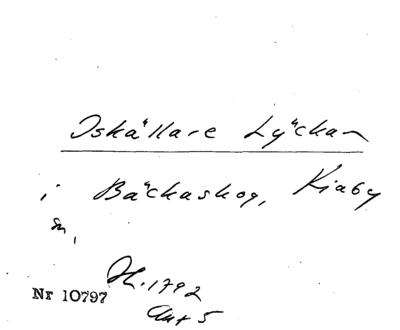 Iskällare Lyckan
i Bäckaskog, Kiaby
sn,
H. 1792
Nr 10797
Ant 5